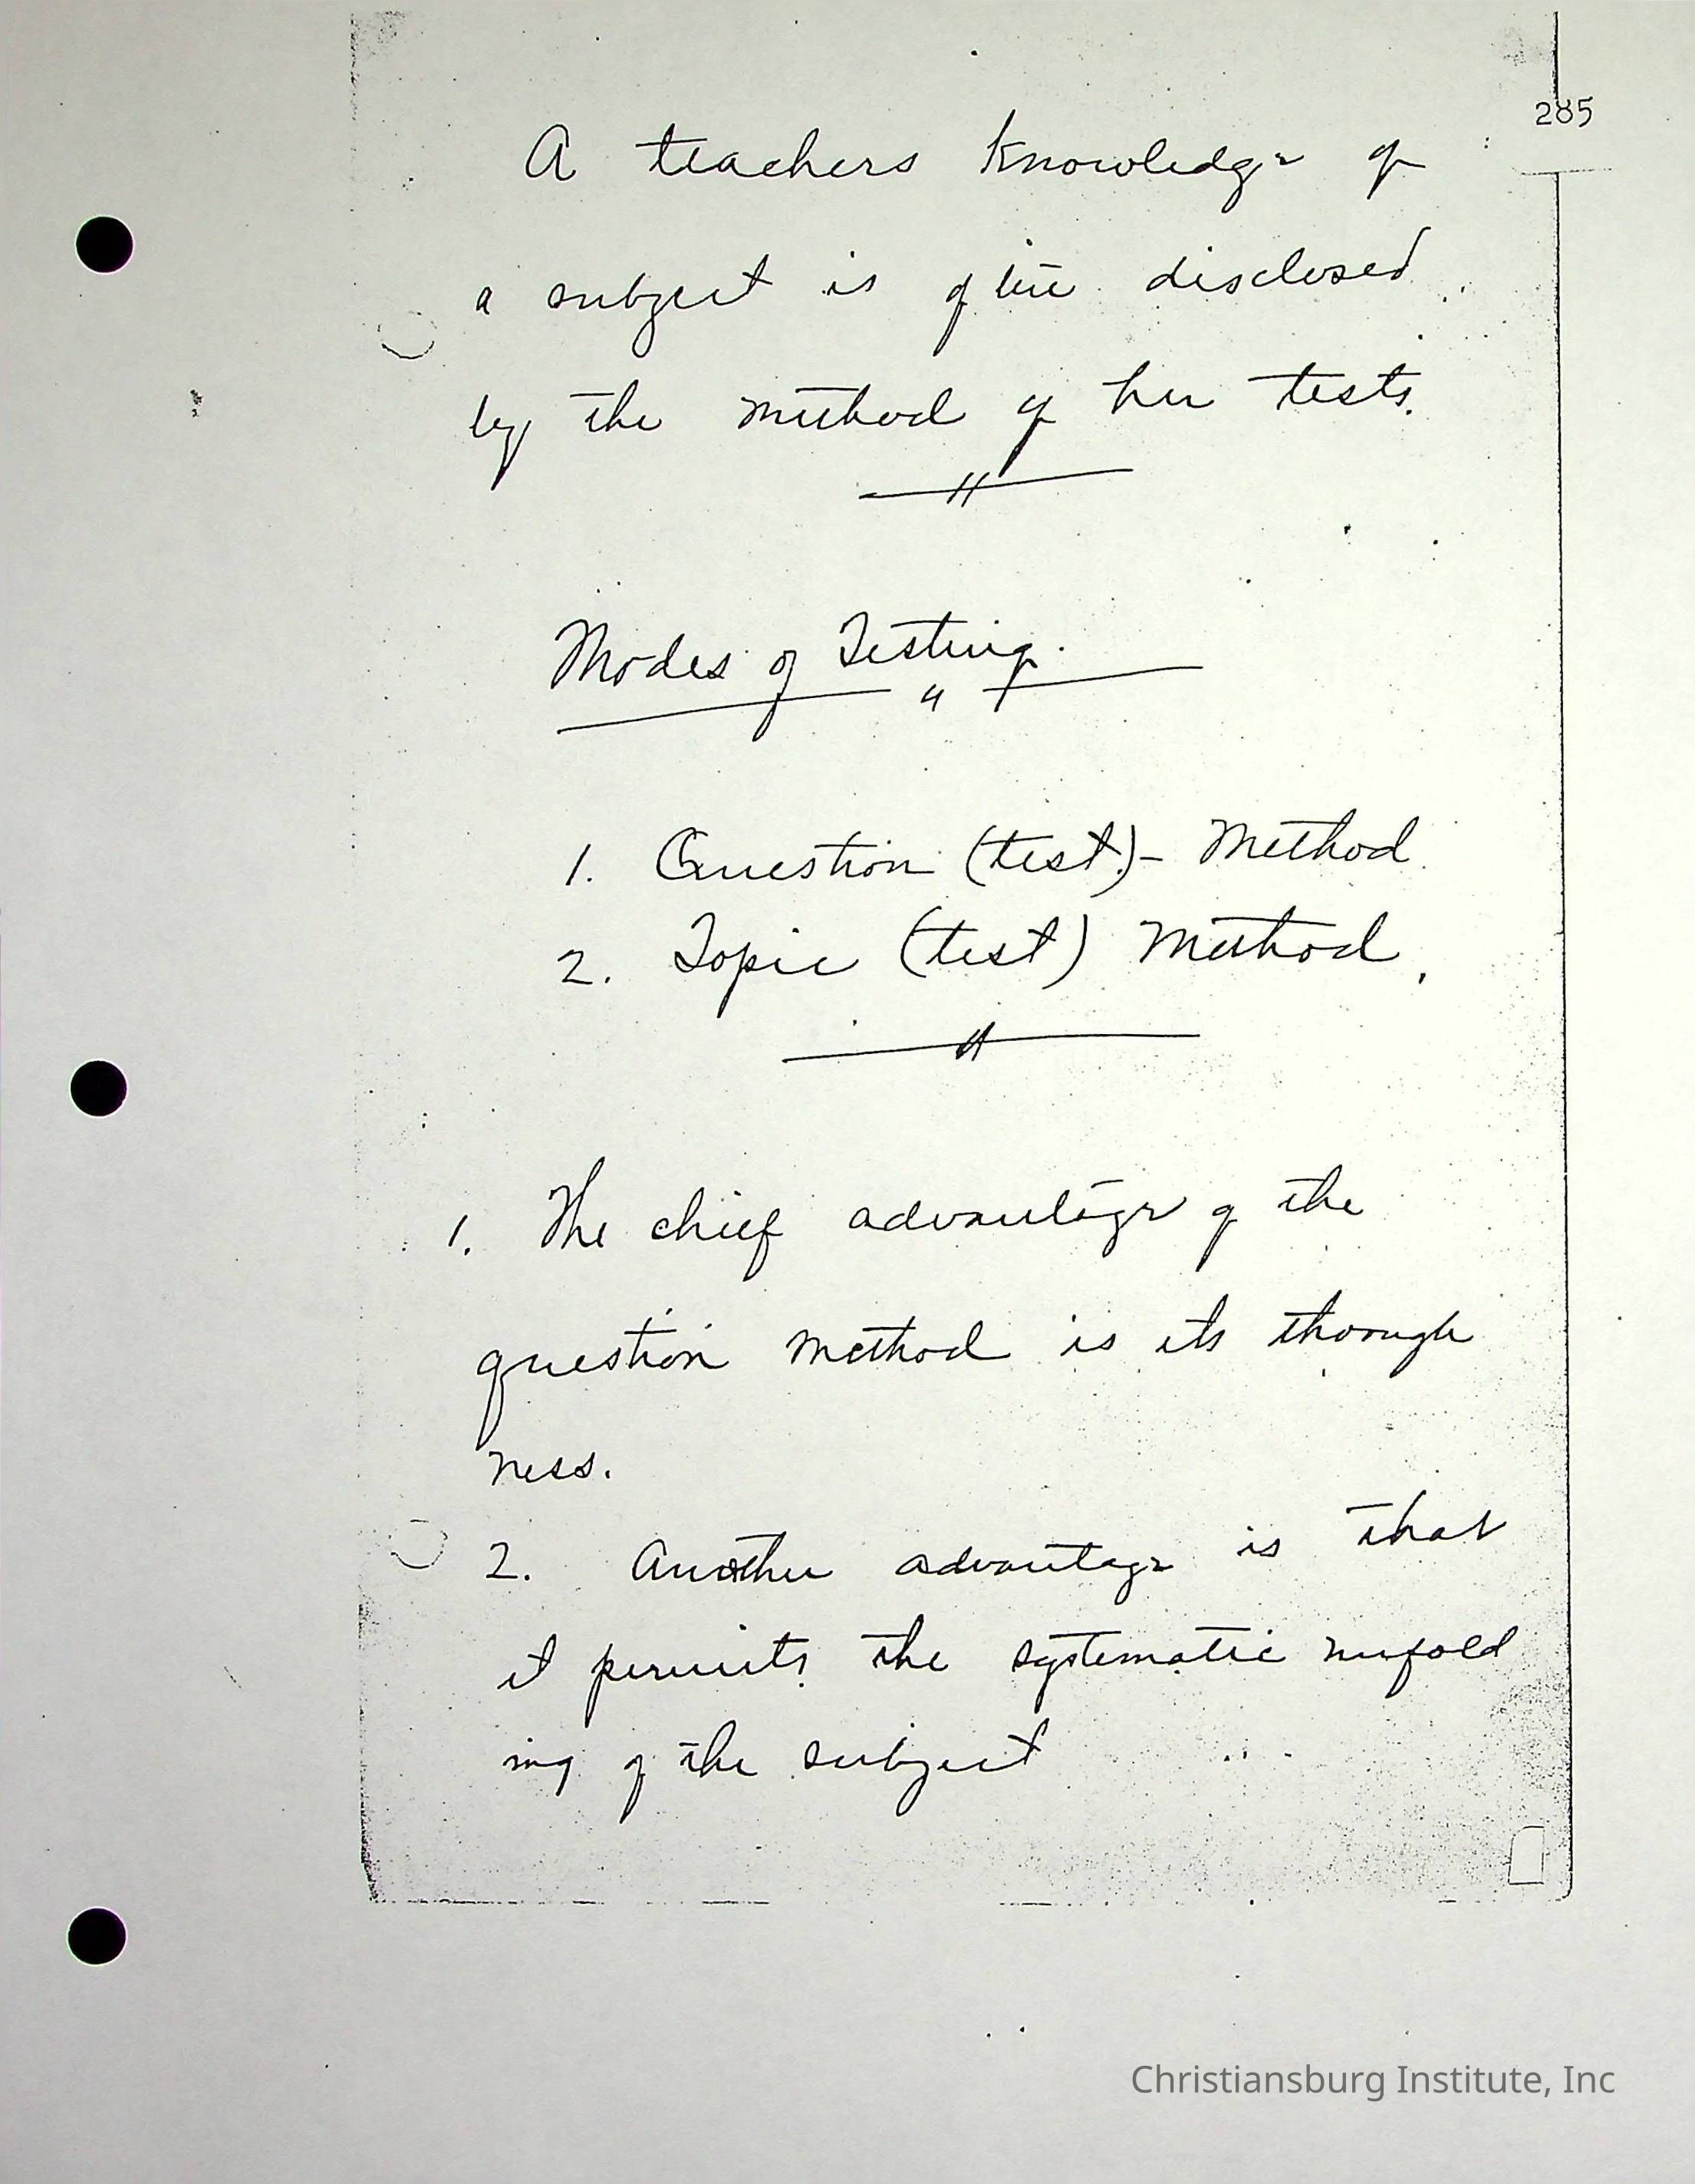 285
A teachers knowledge of
a subject is often disclosed
by the method of her tests.
Modes of Testing.
1. Question (test)- Method.
2. Topic (test) Method.
1. The chief advantage of the
question method is its thorough
ness.
2. Another advantage is that
it permits the systematic unfold
ing of the subject
Christiansburg Institute, Inc